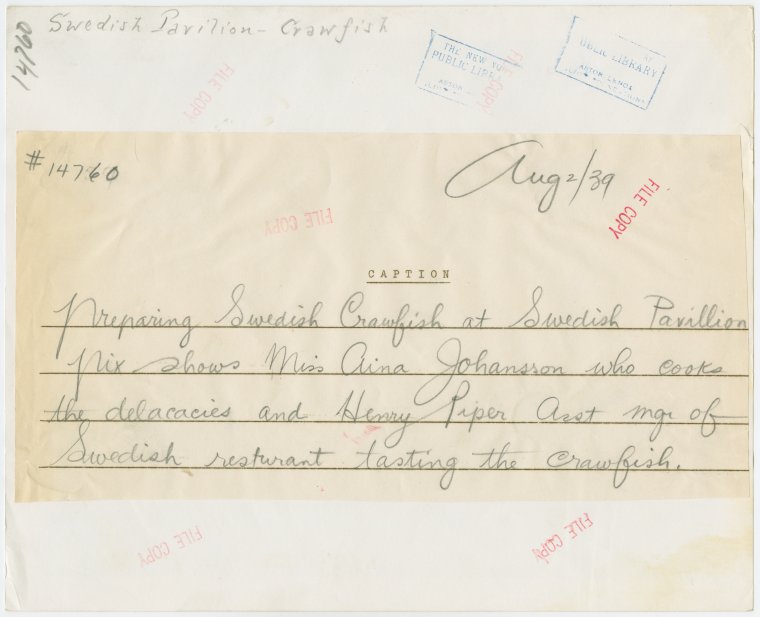 14760
Swedish Pavilion - Crawfish
THE NEW YOR
PUBLIC LIBRA
ASTOR
UBLIC LIBRARY
ASTOR LENOX
FILE COPY
FILE COPY
#14760
Aug 2/39
FILE COPY
FILE COPY
CAPTION
Preparing Swedish Crawfish at Swedish Pavillion
Pix shows Miss Aina Johansson who cooks
the delacacies and Henry Piper Asst mgr of
Swedish resturant tasting the crawfish.
FILE COPY
FILE COPY